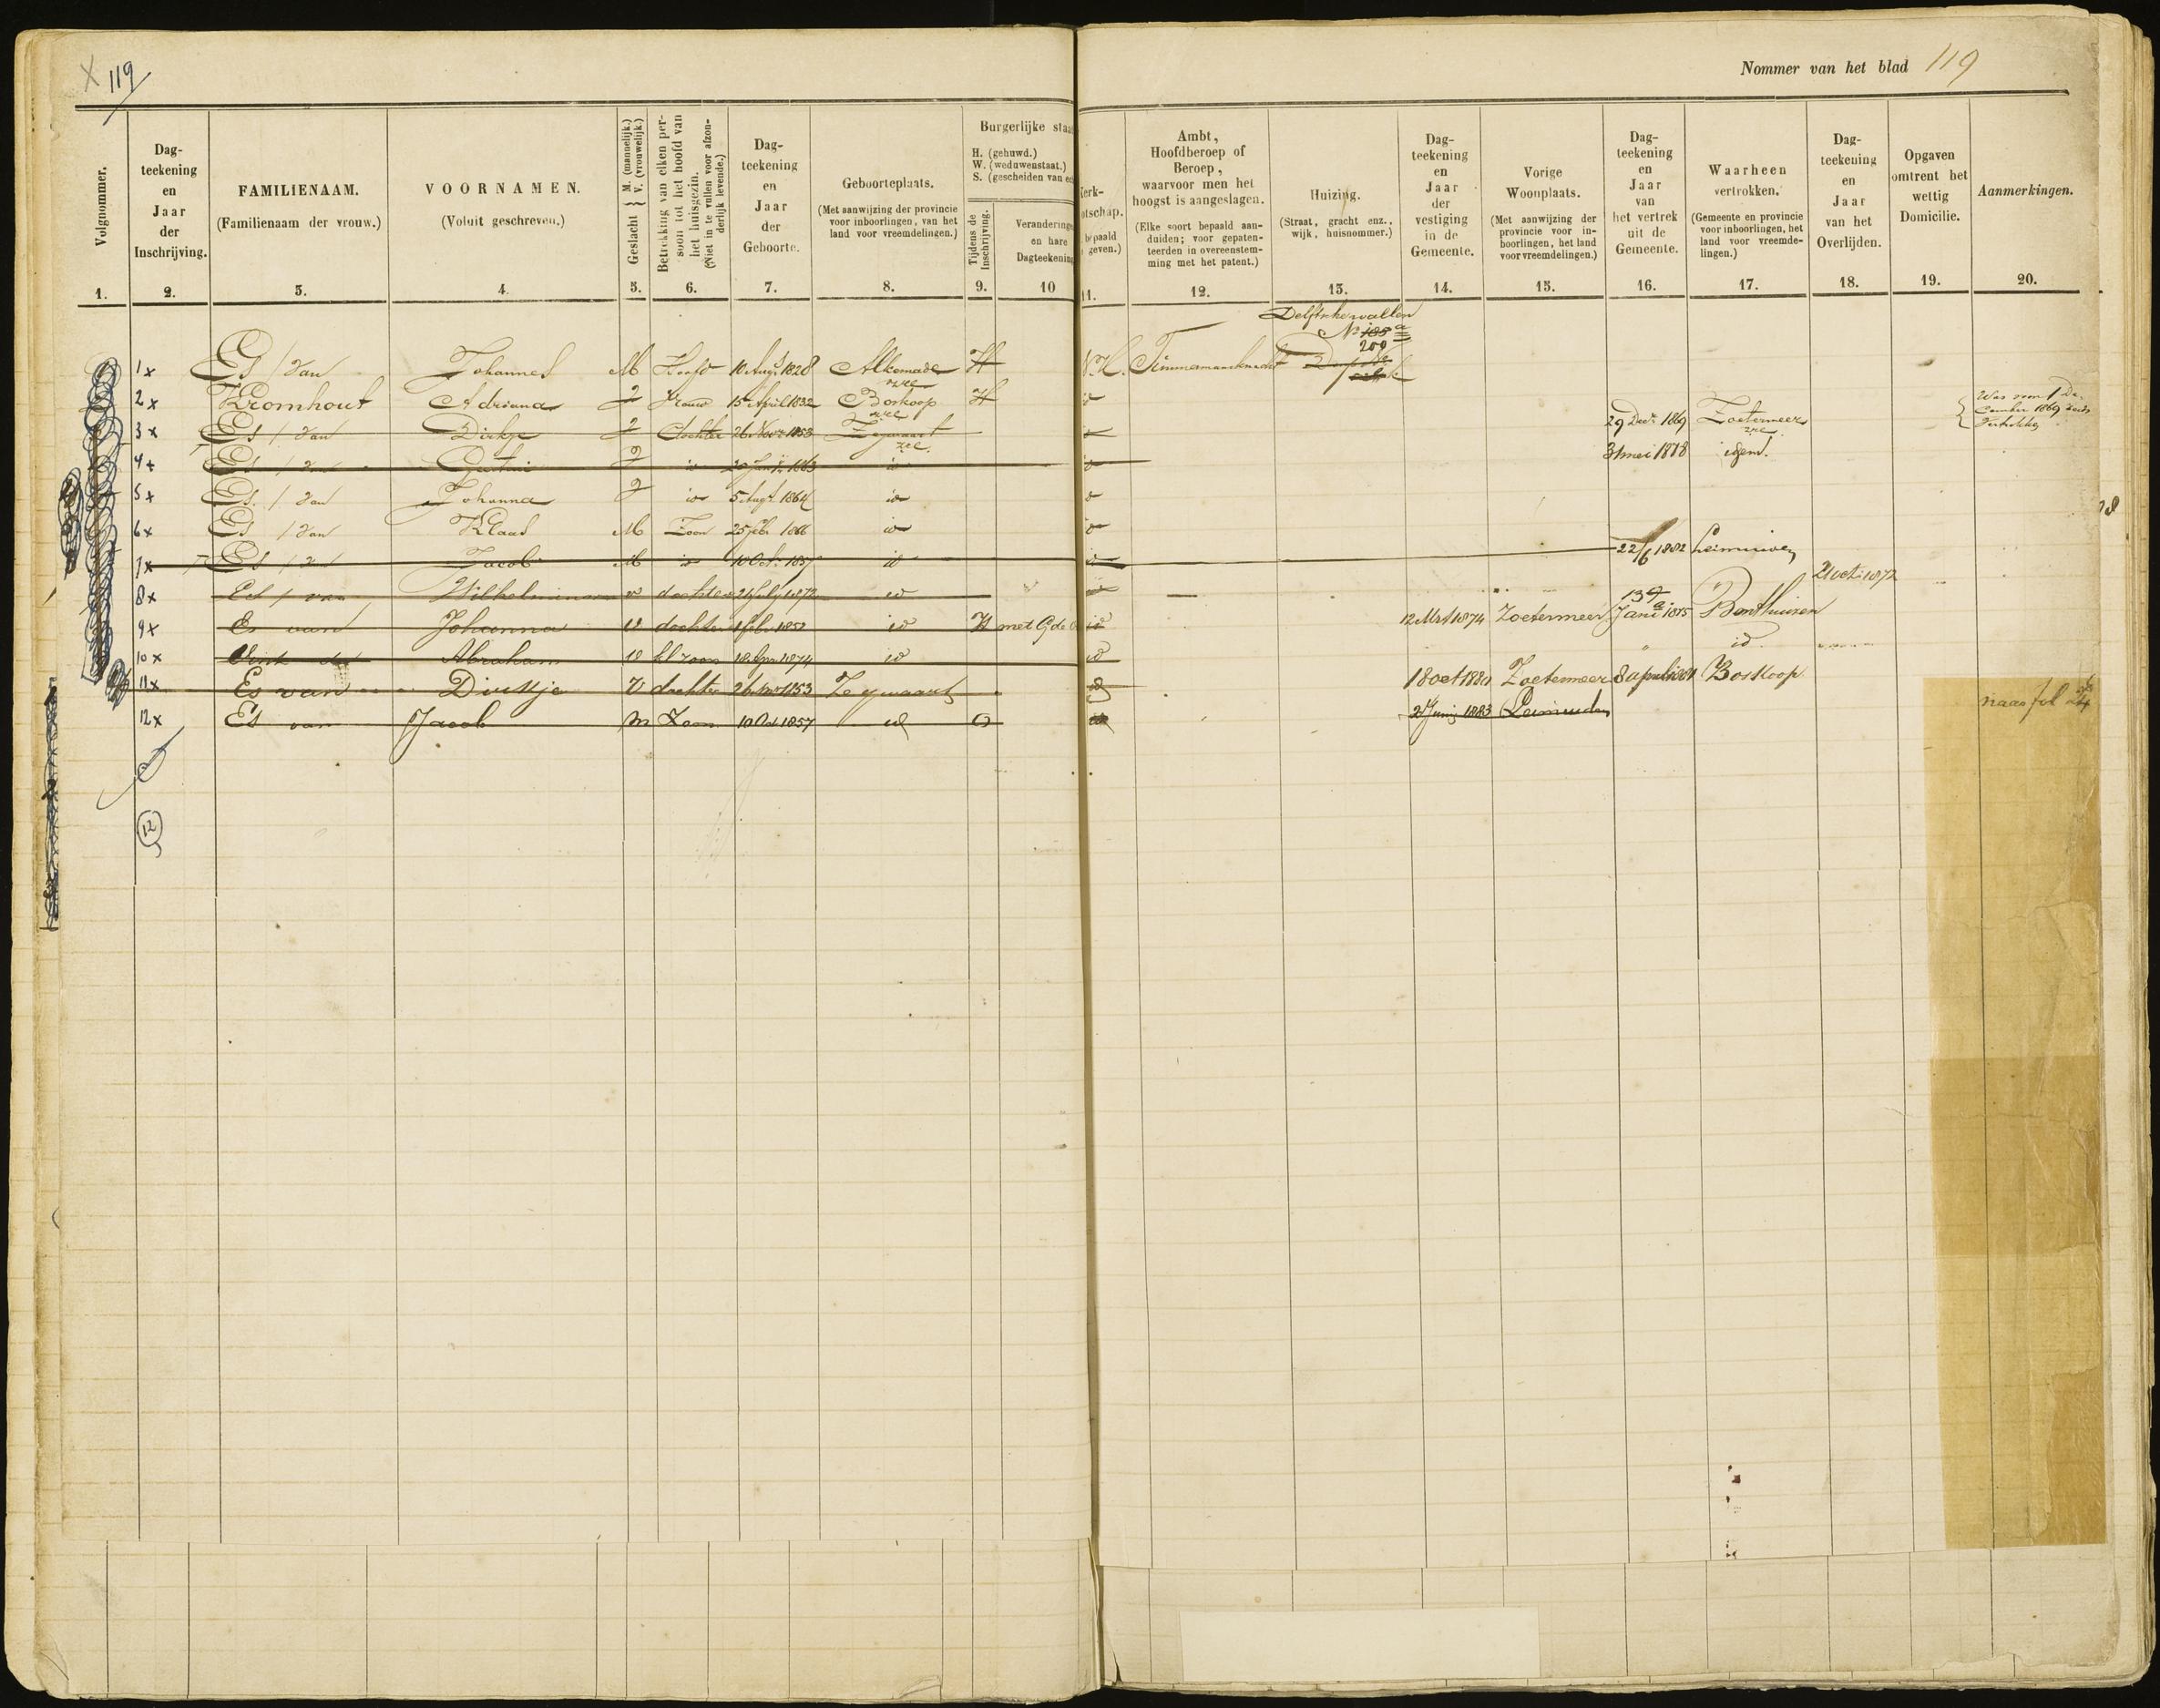 X 119
Nommer van het blad 119
Volgnommer.
1.
Dag-
teekening
en
Jaar
der
Inschrijving.
2.
FAMILIENAAM.
(Familienaam der vrouw.)
3.
VOORNAMEN.
(Voluit geschreven.)
4.
Geslacht { M. (mannelijk.) V. (vrouwelijk.)
5.
Betrekking van elken per-
soon tot het hoofd van
het huisgezin.
(Niet in te vullen voor afzon-
derlijk levende.)
6.
Dag-
teekening
en
Jaar
der
Geboorte.
7.
Geboorteplaats.
(Met aanwijzing der provincie
voor inboorlingen, van het
land voor vreemdelingen.)
8.
Burgerlijke staa
H. (gehuwd.)
W. (weduwenstaat.)
S. (gescheiden van ec
Tijdens de
Inschrijving.
9.
Verandering
en hare
Dagteekening
10
Kerk-
otschap.
bepaald
geven.)
11.
Ambt,
Hoofdberoep of
Beroep,
waarvoor men het
hoogst is aangeslagen.
(Elke soort bepaald aan-
duiden; voor gepaten-
teerden in overeenstem-
ming met het patent.)
12.
Huizing.
(Straat, gracht enz.,
wijk, huisnommer.)
13.
Dag-
teekening
en
Jaar
der
vestiging
in de
Gemeente.
14.
Vorige
Woonplaats.
(Met aanwijzing der
provincie voor in-
boorlingen, het land
voor vreemdelingen.)
15.
Dag-
teekening
en
Jaar
van
het vertrek
uit de
Gemeente.
16.
Waarheen
vertrokken.
(Gemeente en provincie
voor inboorlingen, het
land voor vreemde-
lingen.)
17.
Dag-
teekening
en
Jaar
van het
Overlijden.
18.
Opgaven
omtrent het
wettig
Domicilie.
19.
Aanmerkingen.
20.
Delftsche wallen
No 185 a
200
1x Es / van Johannes M Hoofd 10 Aug 1828 Alkemade H N.H. Timmermansknecht
2x Kromhout Adriana V Vrouw 15 April 1832 Boskoop H id
3x Es / van Dirkje V dochter 26 Nov 1853 Zegwaart 29 Dec 1869 Zoetermeer
4x Es / van V id 1863 id id 31 mei 1878 idem
5x Es / van Johanna V id 5 Aug 1864 id id
6x Es / van Klaas M Zoon 25 Feb 1866 id id
7x Es / van Jacob M id 10 Oct 1857 id id 22/6 1882 Leimuiden
8x Es / van Wilhelmina v dochter 1872 id id 21 oct 1872
9x Es van Johanna V dochter id H met id 12 Mrt 1874 Zoetermeer 1875 Benthuizen
10x Abraham kl zoon 1874 id id id
11x Es van Dirkje V dochter 26 nov 1853 Zegwaart id 18 oct 1880 Zoetermeer 8 april 1881 Boskoop
12x Es van Jacob m Zoon 10 Oct 1857 id O id 2 Juni 1883 Leimuiden
naar fol
12